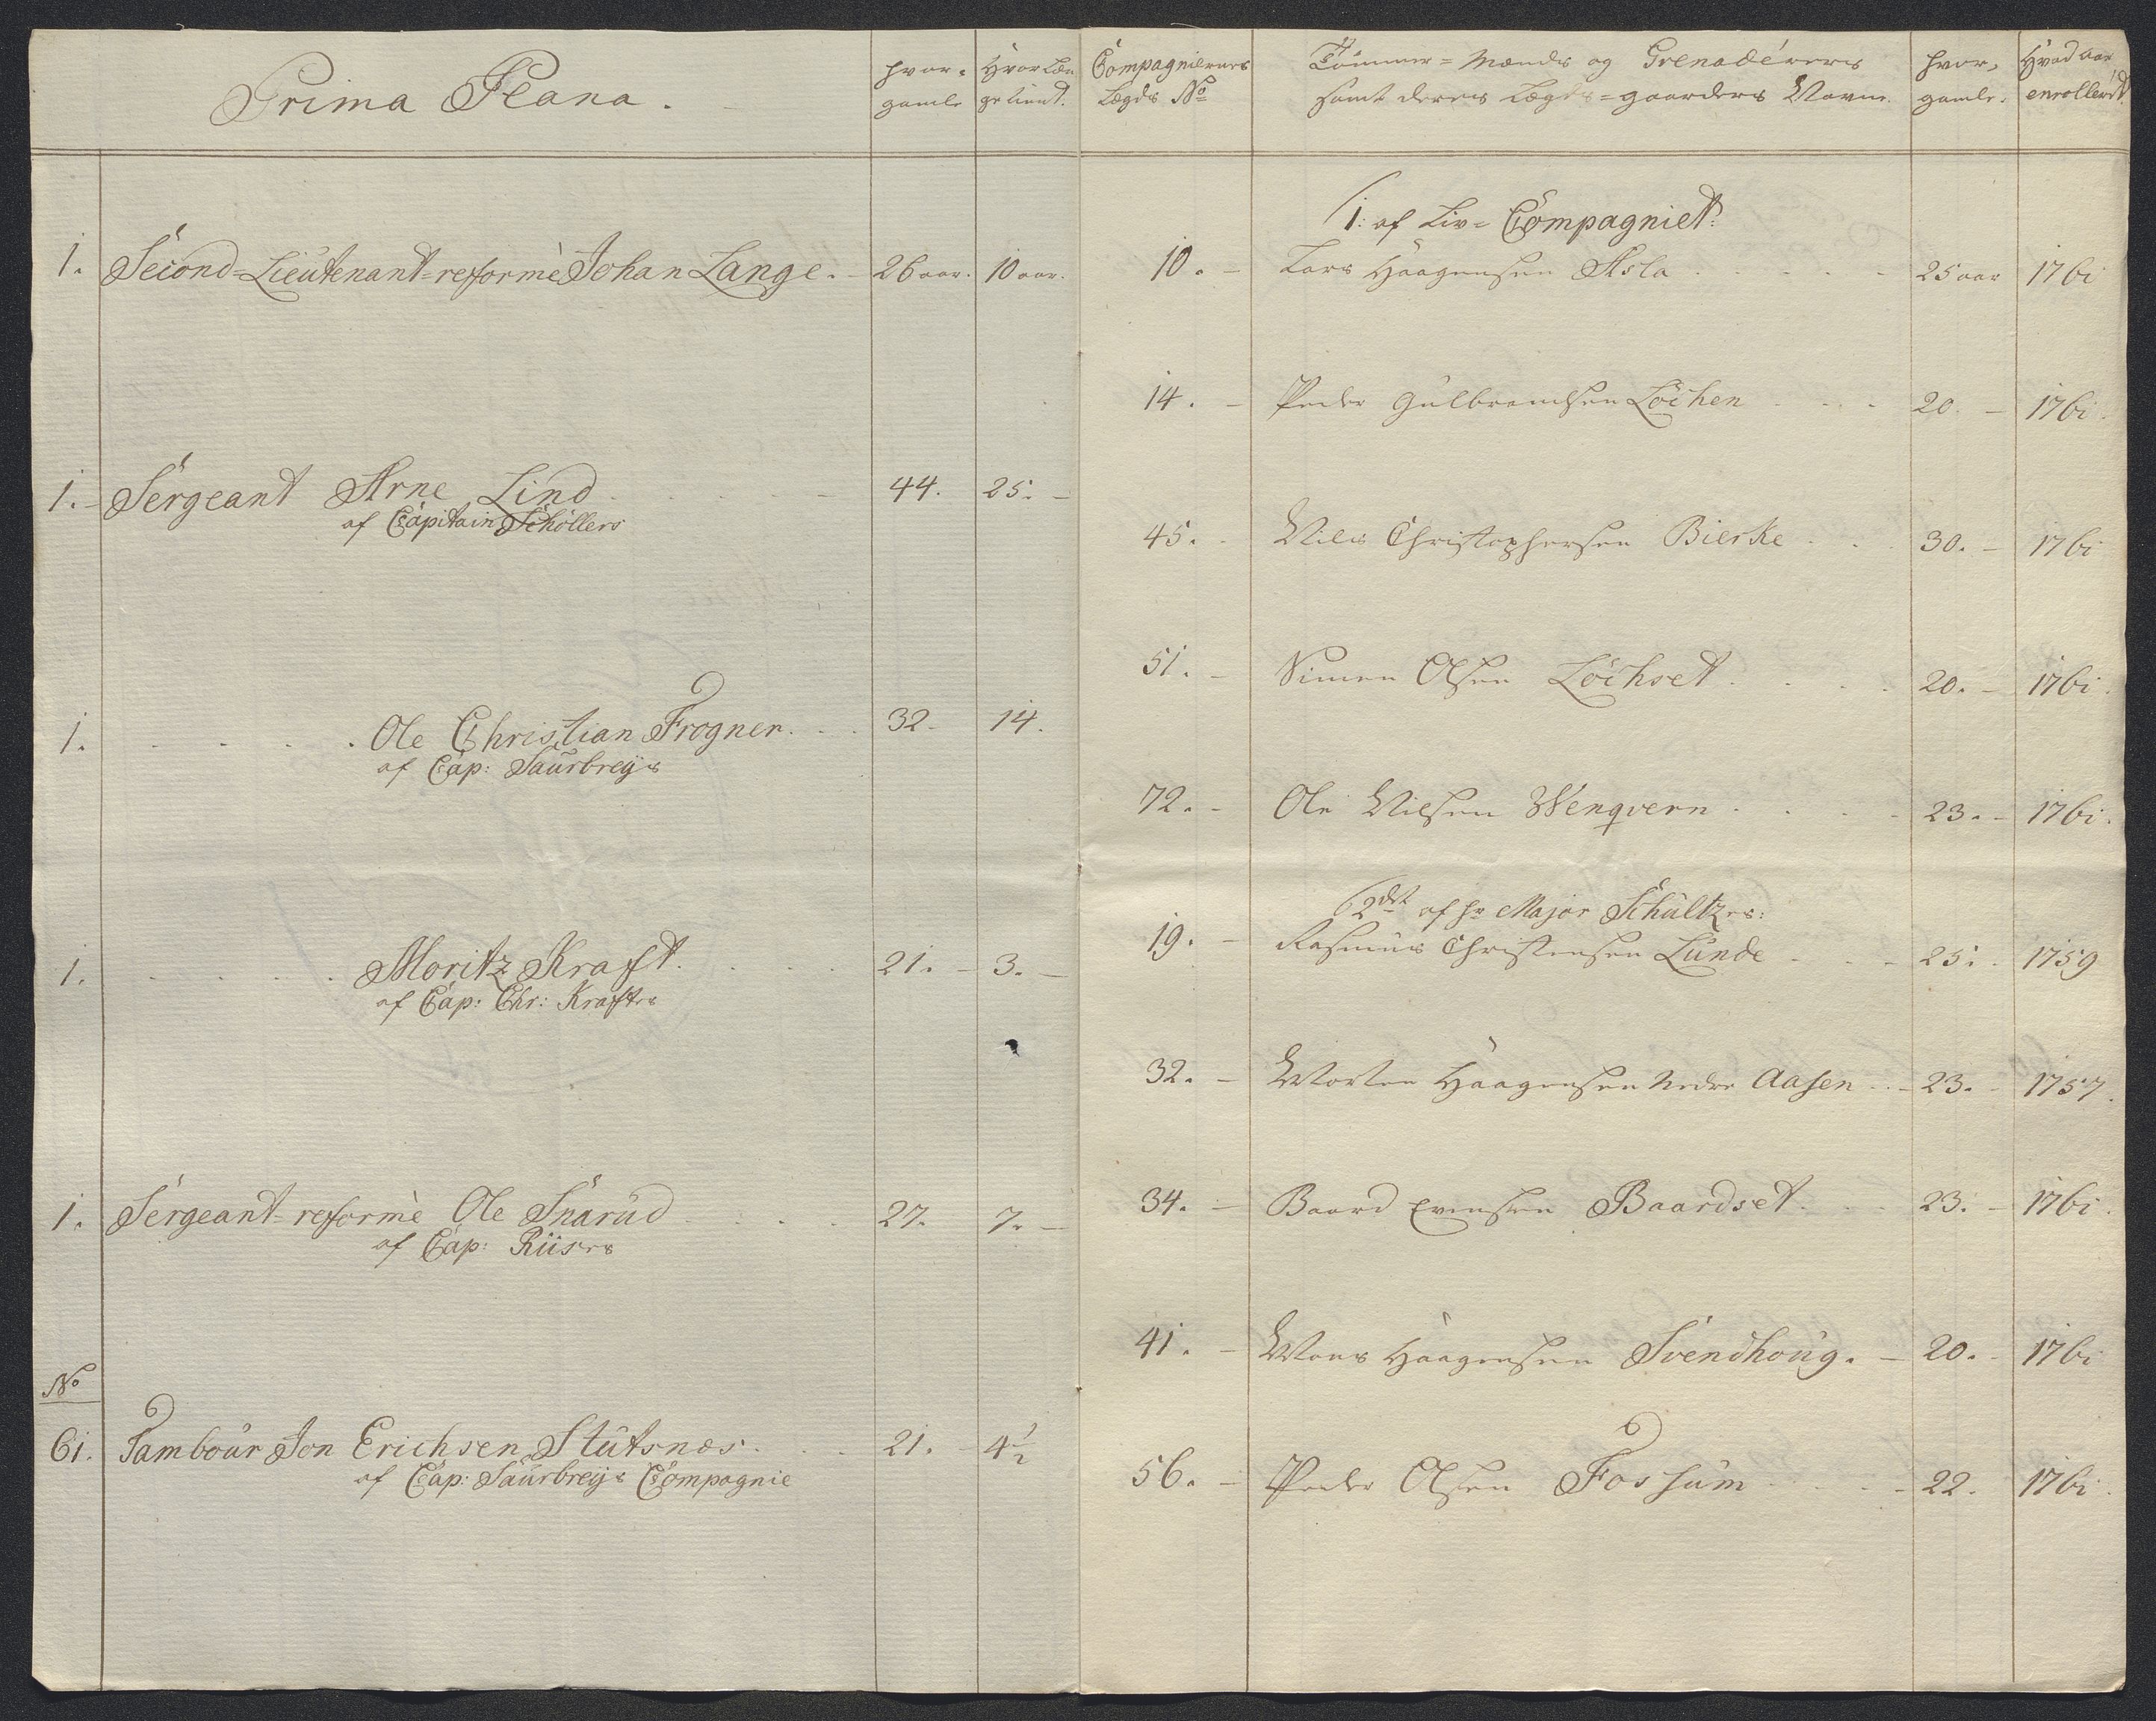 Prima Plana.
hvor-
gamle
Hvor Læn
ge tient.
1. Second-Lieutenant-reformè Johan Lange. 26 aar. 10 aar.
1. Sergeant Arne Lind 44. 25.
af Capitain Schøllers
1. Ole Christian Frogner. 32. 14.
af Cap: Saurbreys
1. Moritz Krafft. 21. 3.
af Cap: Chr: Kraftes
1. Sergeant-reformè Ole Snarud 27. 7.
af Cap: Riises
No
61. Tambour Jon Erichsen Stutsnæs. 21. 4½
af Cap: Saurbreys Compagnie
Compagniernes
Lægds No
Tømmer-Mænds og Grenadérers
samt deres Lægds-gaarders Navne.
hvor-
gamle.
Hvad aar
enrollerèt.
1: af Liv-Compagniet:
10. Lars Haagensen Asla 25 aar 1761
14. Peder Gulbrandsen Løchen 20. 1761.
45. Nils Christophersen Bierke 30. 1761
51. Simen Olsen Løchset 20. 1761.
72. Ole Nilsen Wenqvern 23. 1761.
2det af Hr Major Schultzes:
19. Rasmus Christensen Lunde 25. 1759
32. Morten Haagensen Nedre Aasen 23. 1757.
34. Baard Evensen Baardset. 23. 1761.
41. Mons Haagensen Svendhoug. 20. 1761
56. Peder Olsen Fossum 22. 1761.